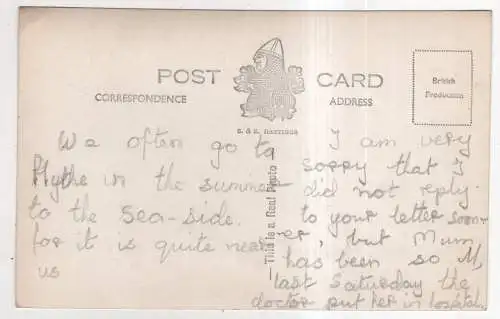 POST CARD
CORRESPONDENCE
ADDRESS
British
Production
This is a Real Photo
We often go to
Hythe in the summer
to the sea-side.
for it is quite near
us
I am very
sorry that I
did not reply
to your letter soon-
er, but Mum
has been so ill,
last Saturday the
doctor put her in hospital.